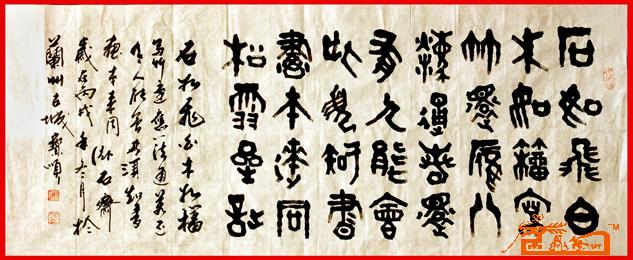 石如飛白
木如籀寫
竹還應八
法通若還
有人能會
此須知書
畫本來同
松雪
石如飛白木如籀
寫竹還應八法通若還
有人能會此須知書
畫本来同 石齋
歲在丙戌年冬月於
蘭州古城